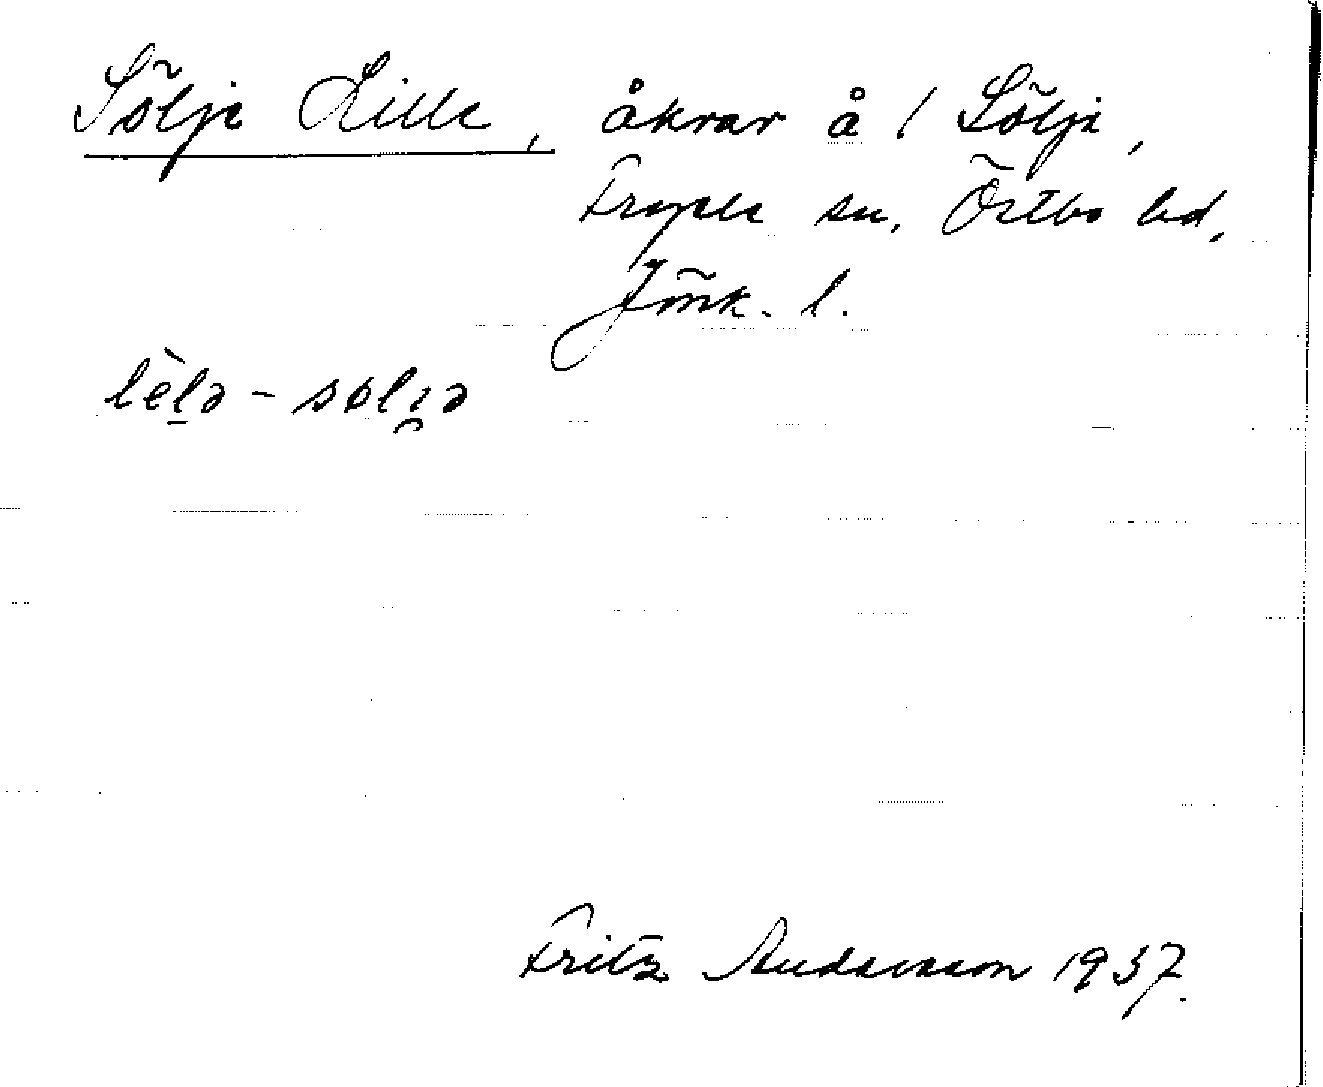 Sölje Lille, åkrar å / Sölje,
Fryele sn, Östbo hd,
Jönk. l.
lèl̠ə - søli̯ə
Fritz Andersson 1937.